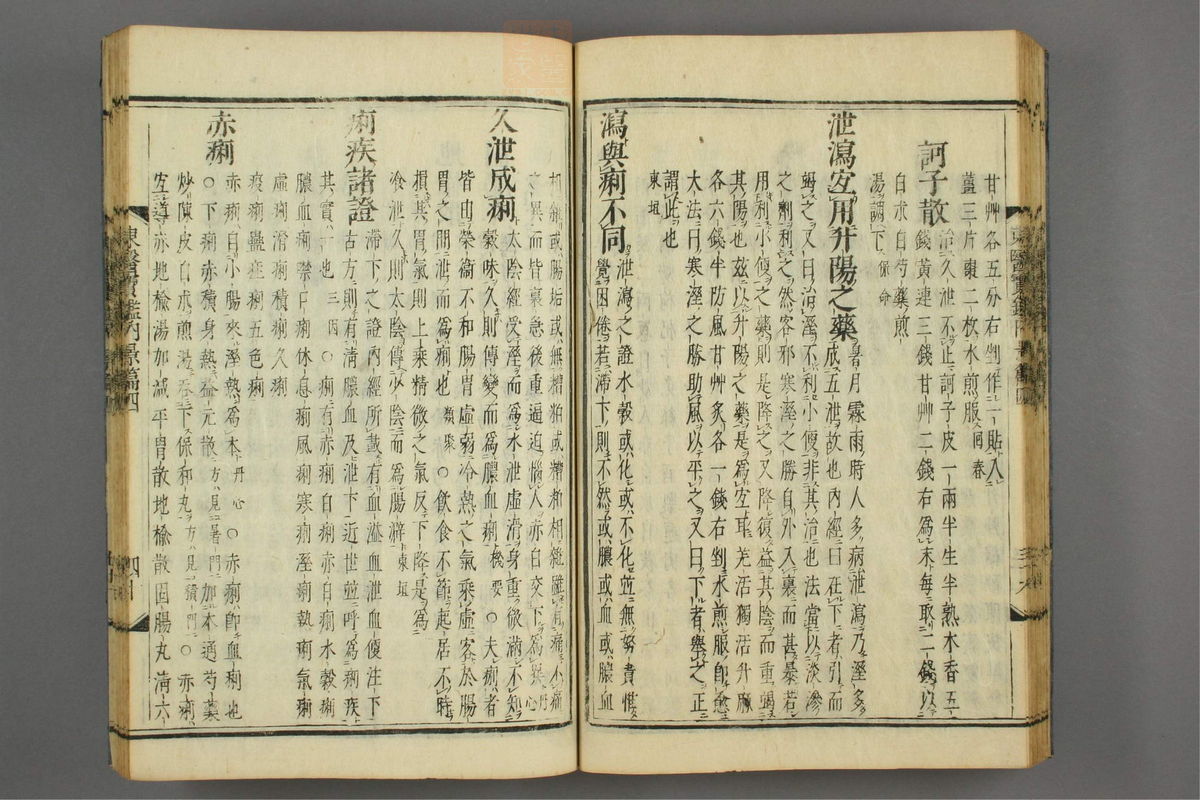 甘艸各五分右剉作一貼入
薑三片棗二枚水煎服回春
訶子散治久泄不止訶子皮一兩半生半熟木香五
錢黄連三錢甘艸二錢右爲末每取二錢以
白朮白芍藥煎
湯調下保命
泄瀉宜用升陽之藥暑月霖雨時人多病泄瀉乃溼多
成五泄故也內經曰在下者引而
竭之又曰治溼不利小便非其治也法當以淡滲
之劑利之然客邪寒溼之勝自外入裏而甚暴若
用利小便之藥則是降之又降復益其陰而重竭
其陽也玆以升陽之藥是爲宜耳羌活獨活升麻
各六錢半防風甘艸炙各一錢右剉水煎服卽愈
大法曰寒溼之勝助風以平之又曰下者擧之正
謂此也
東垣
瀉與痢不同泄瀉之證水穀或化或不化並無努責惟
覺困倦若滯下則不然或膿或血或膿血
相雜或腸垢或無糟粕或糟粕相雜雖有痛不痛
之異而皆裏急後重逼迫惱人赤白交下爲異丹心
久泄成痢太陰經受溼而爲水泄虛滑身重微滿不知
穀味久則傳變而爲膿血痢機要○夫痢者
皆由榮衞不和腸胃虛弱冷熱之氣乘虛客於腸
胃之間泄而爲痢也類聚○飮食不節起居不時
損其胃氣則上乘精微之氣反下降是爲
飧泄久則太陰傳少陰而爲腸澼東垣
痢疾諸證古方則有淸膿血及泄下近世並呼爲痢疾
滯下之證內經所載有血溢血泄血便注下
其實一也三因○痢有赤痢白痢赤白痢水穀痢
膿血痢噤口痢休息痢風痢寒痢溼痢熱痢氣痢
虛痢滑痢積痢久痢
疫痢蠱疰痢五色痢
赤痢赤痢自小腸來溼熱爲本丹心○赤痢卽血痢也
○下痢赤積身熱益元散方見暑門加木通芍藥
炒陳皮白朮煎湯吞下保和丸方見積門○赤痢
宜導赤地楡湯加減平胃散地楡散固腸丸淸六
東醫寶鑑內景篇四
四